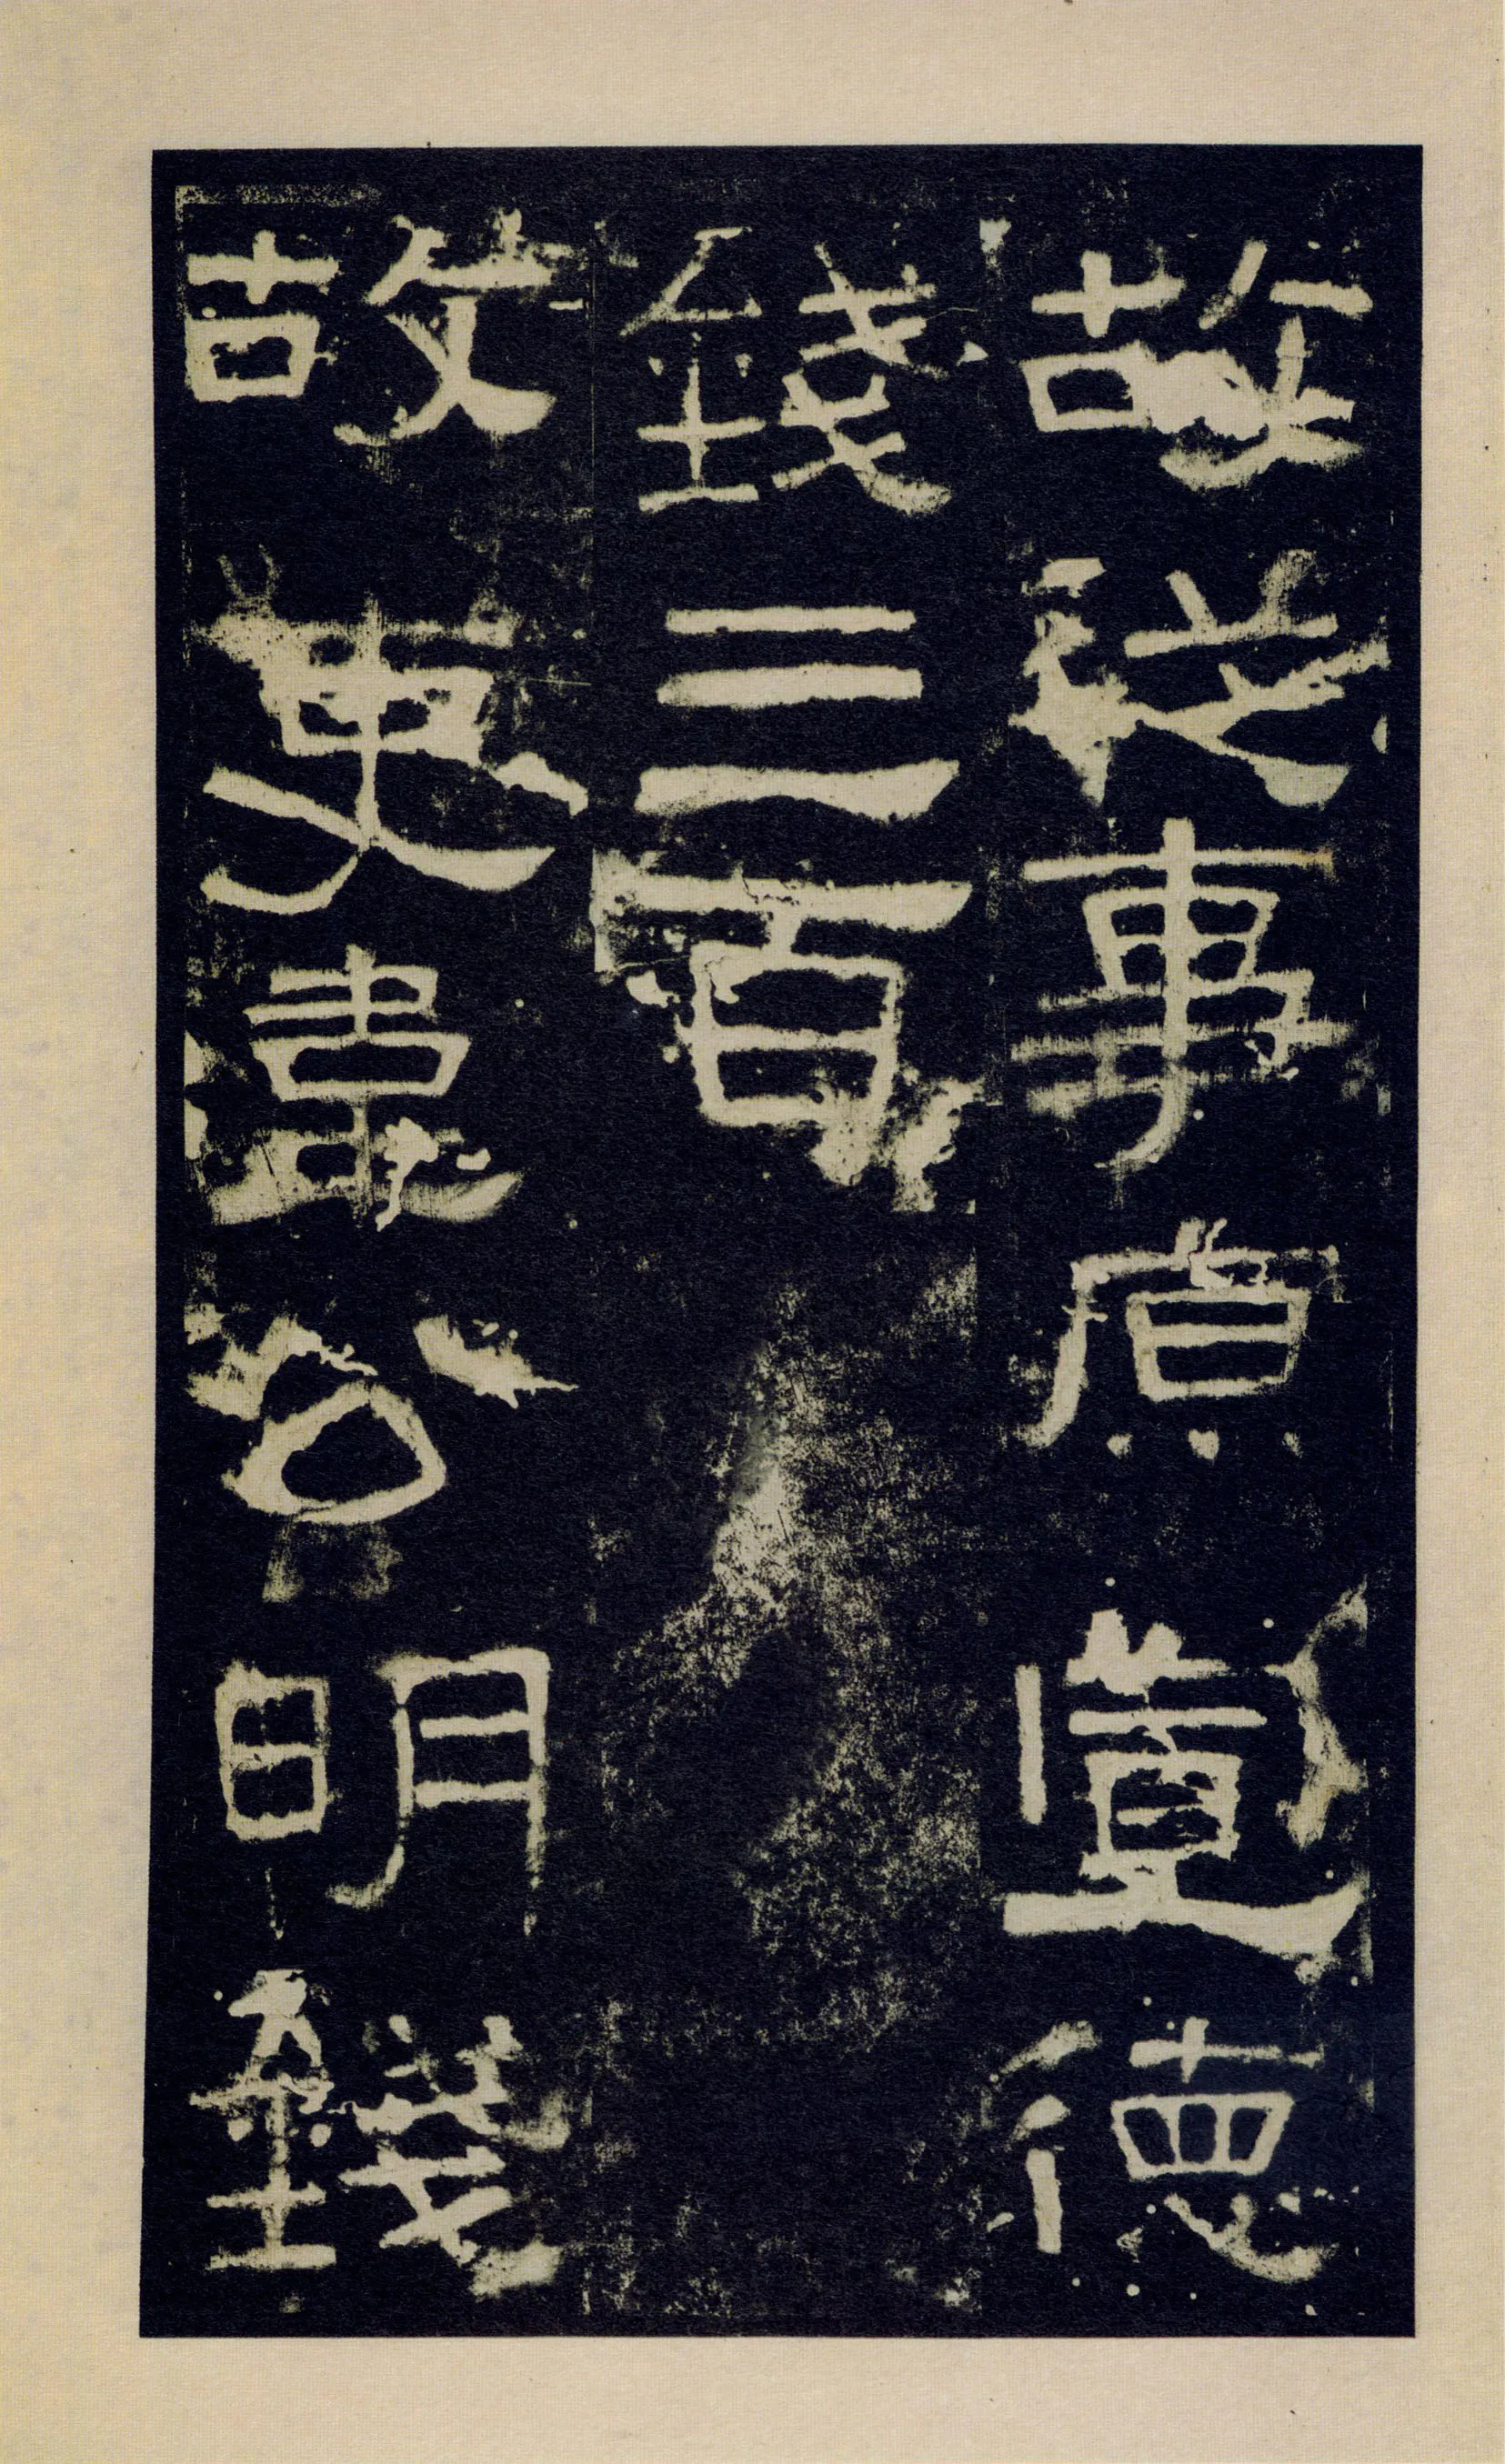 故從事原宣德
錢三百
故吏韋公明錢